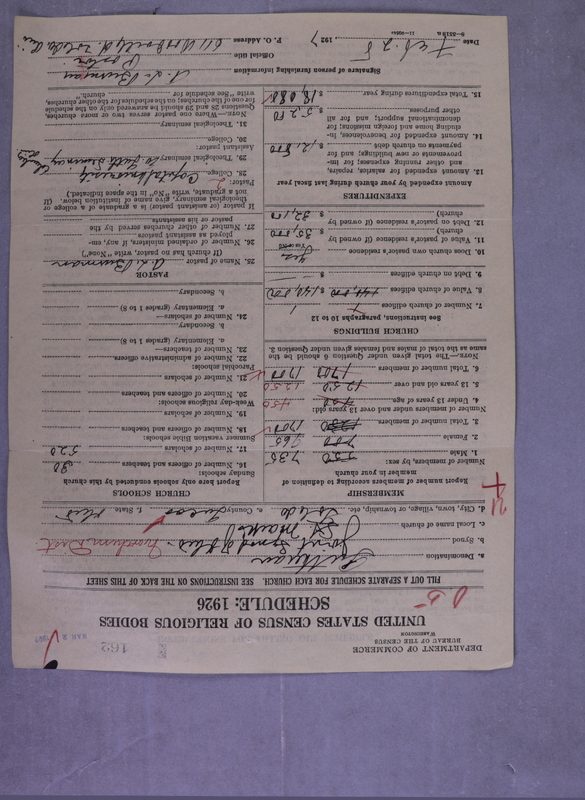 DEPARTMENT OF COMMERCE
BUREAU OF THE CENSUS
WASHINGTON
162
MAR 2 1927
UNITED STATES CENSUS OF RELIGIOUS BODIES
SCHEDULE: 1926
FILL OUT A SEPARATE SCHEDULE FOR EACH CHURCH. SEE INSTRUCTIONS ON THE BACK OF THIS SHEET
a. Denomination Lutheran
b. Synod Joint Synod of Ohio
c. Local name of church St Marks
d. City, town, village, or township, etc. Toledo e. County Lucas f. State Ohio
MEMBERSHIP
Report number of members according to definition of member in your church
Number of members, by sex:
1. Male 735
2. Female 965
3. Total number of members 1700
Number of members under and over 13 years old:
4. Under 13 years of age 450
5. 13 years old and over 1250 1250
6. Total number of members 1700 1700
NOTE.—The total given under Question 6 should be the same as the total of males and females given under Question 3.
CHURCH BUILDINGS
See instructions, paragraphs 10 to 12
7. Number of church edifices 1
8. Value of church edifices $ 140,000
9. Debt on church edifices $
10. Does church own pastor's residence yes
11. Value of pastor's residence (if owned by church) $ 35,000
12. Debt on pastor's residence (if owned by church) $ 32,100
EXPENDITURES
Amount expended by your church during last fiscal year
13. Amount expended for salaries, repairs, and other running expenses; for improvements or new buildings; and for payments on church debt $ 12,800
14. Amount expended for benevolences, including home and foreign missions; for denominational support; and for all other purposes $ 5,280
15. Total expenditures during year $ 18,080
CHURCH SCHOOLS
Report here only schools conducted by this church
Sunday schools:
16. Number of officers and teachers 30
17. Number of scholars 520
Summer vacation Bible schools:
18. Number of officers and teachers
19. Number of scholars
Week-day religious schools:
20. Number of officers and teachers
21. Number of scholars
Parochial schools:
22. Number of administrative officers
23. Number of teachers—
a. Elementary (grades 1 to 8)
b. Secondary
24. Number of scholars—
a. Elementary (grades 1 to 8)
b. Secondary
PASTOR
25. Name of pastor
(If church has no pastor, write "None")
26. Number of ordained ministers, if any, employed as assistant pastors
27. Number of other churches served by the pastor or his assistants
If pastor (or assistant pastor) is a graduate of a college or theological seminary, give name of institution below. (If not a graduate, write "No" in the space indicated.)
Pastor:
28. College Capital University
29. Theological seminary
Assistant pastor:
30. College
31. Theological seminary
NOTE.—Where one pastor serves two or more churches, Questions 25 and 29 should be answered only on the schedule for one of the churches; on the schedules for the other churches, write "See schedule for church."
Signature of person furnishing information
Official title Pastor
P. O. Address
Date Feb. 28 , 1927